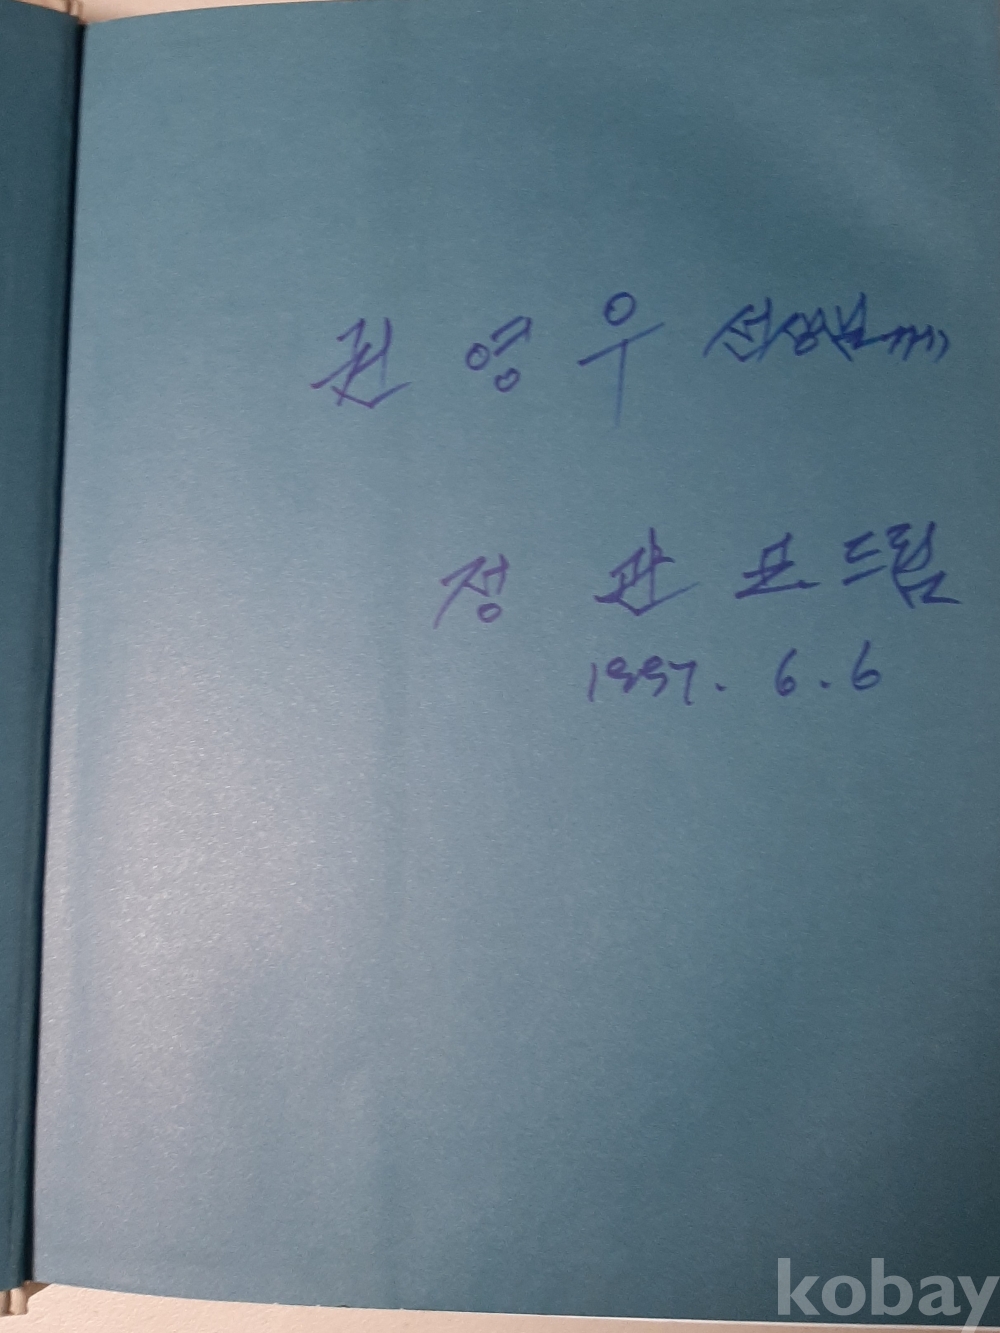 권영우 선생님께
정관표 드림
1997. 6. 6
kobay